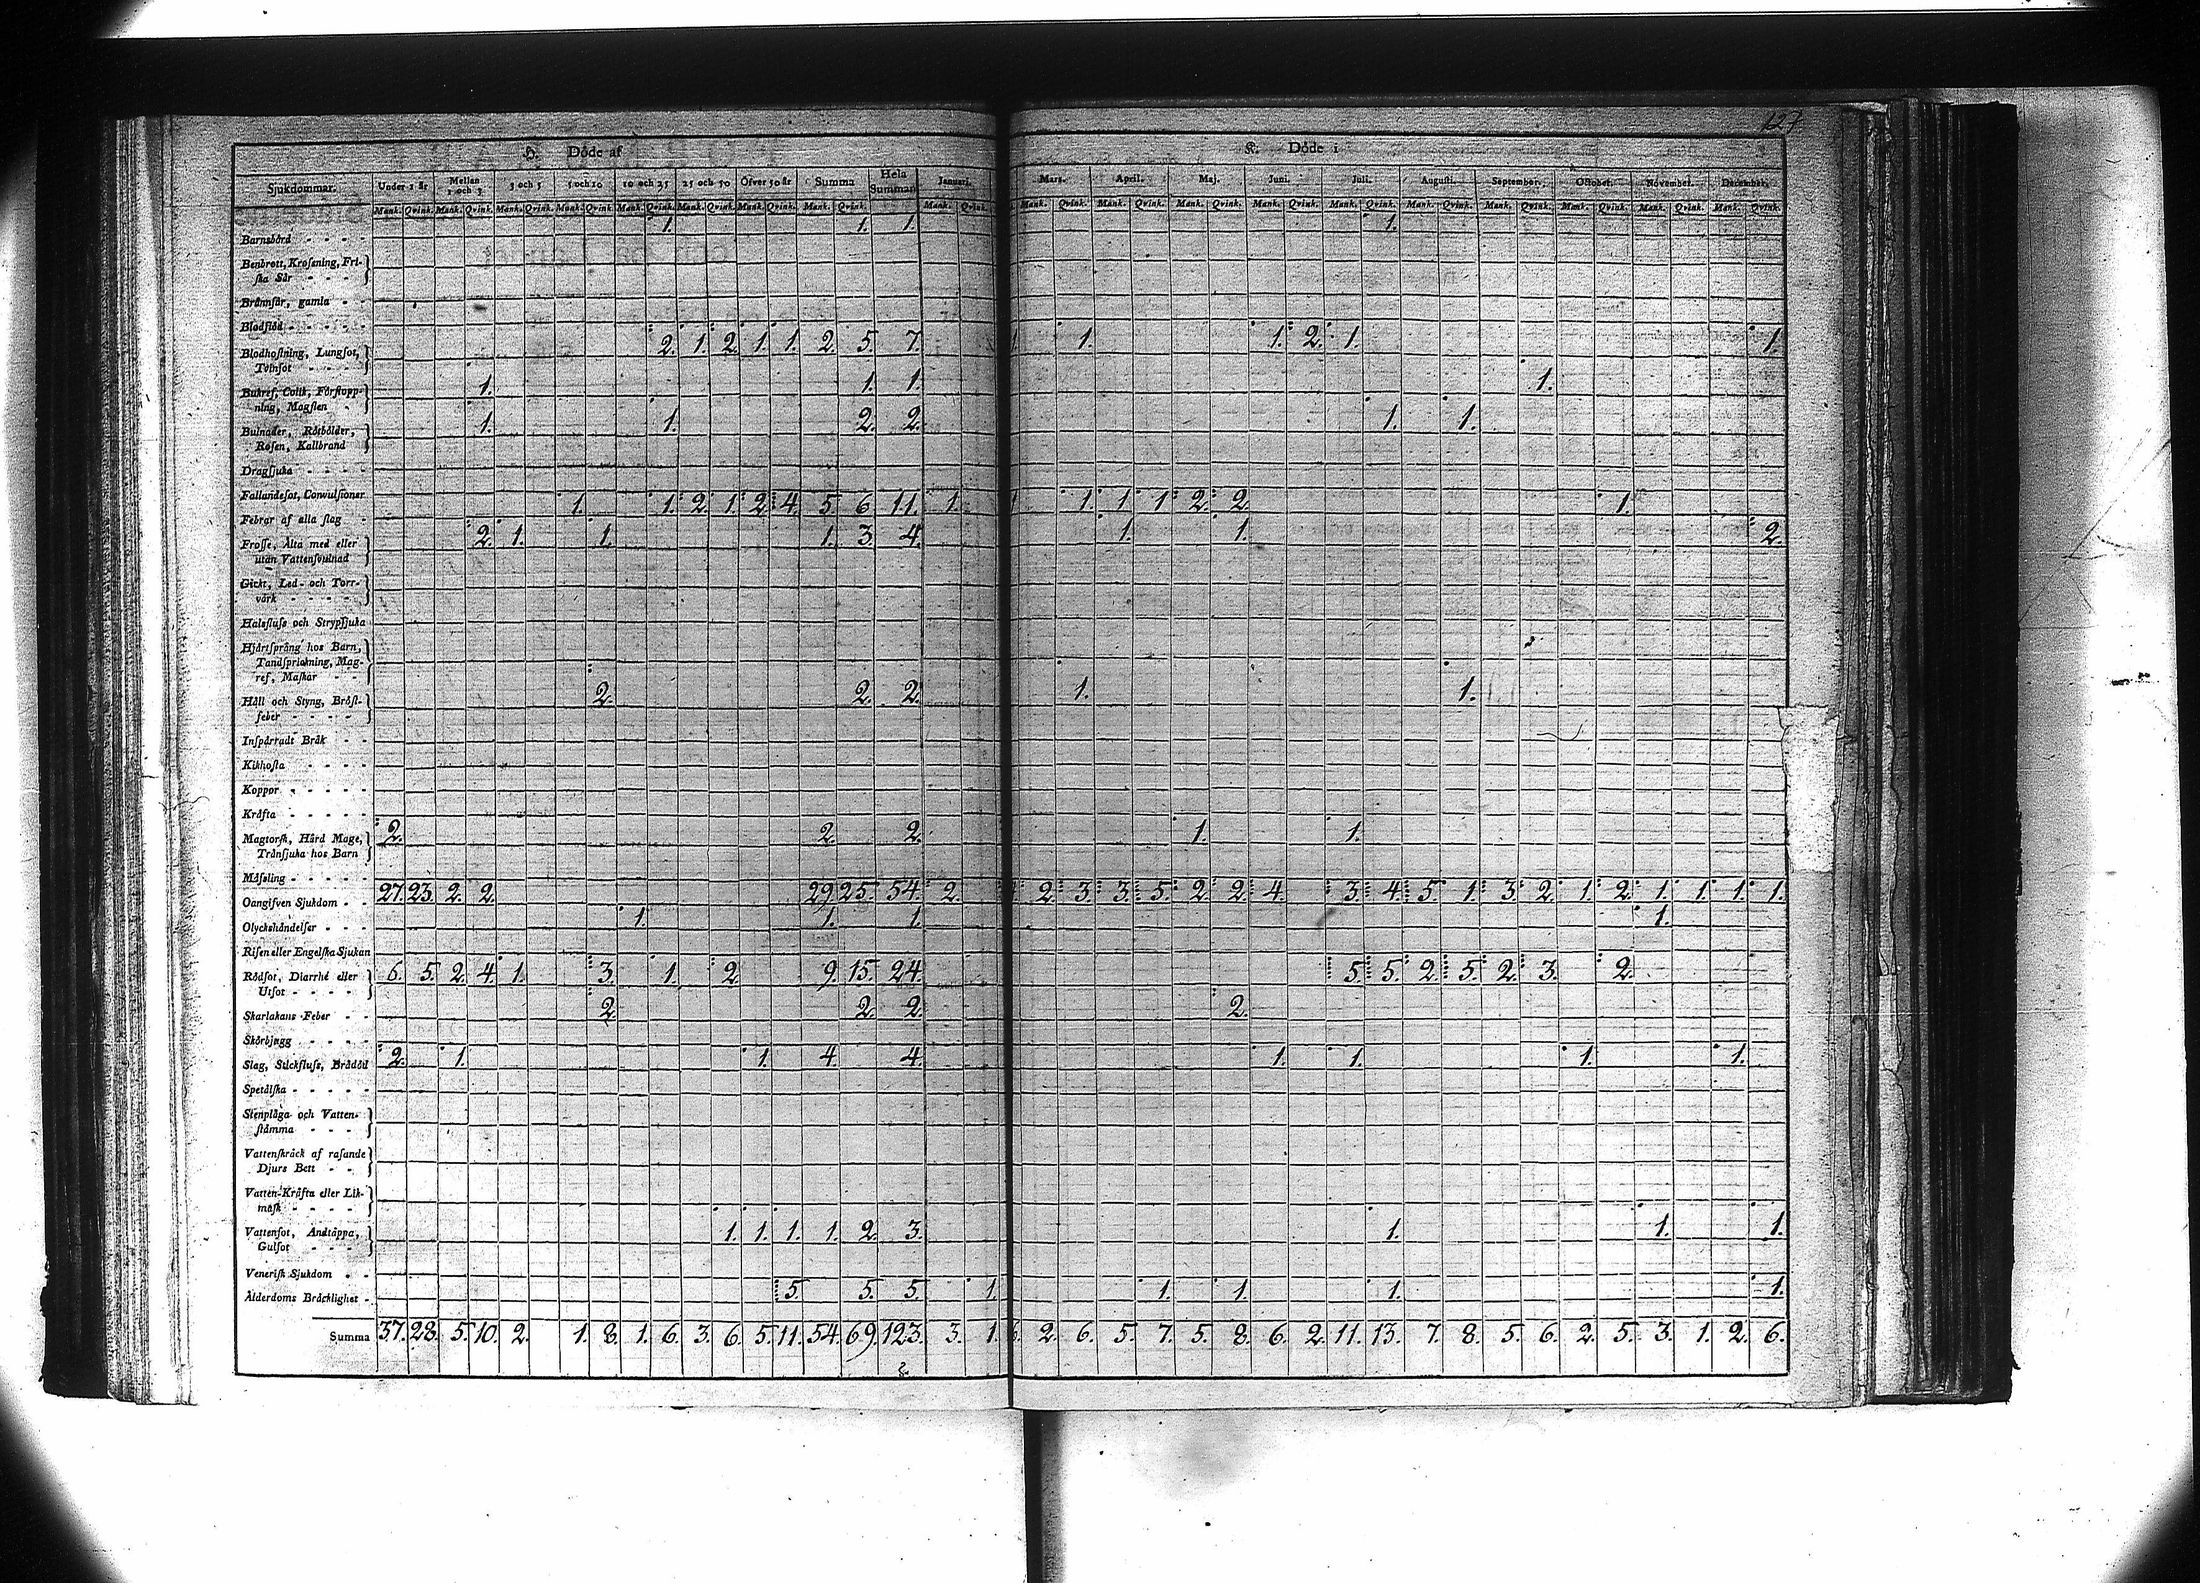 127
H. Döde af K. Döde i
Sjukdommar. Under 1 år Mellan 1 och 3 3 och 5 5 och 10 10 och 25 25 och 50 Öfver 50 år Summa Hela Summan Januari. Mars. April. Maj. Juni. Juli. Augusti. September. October. November. December.
Mank. Qvink. Mank. Qvink. Mank. Qvink. Mank. Qvink. Mank. Qvink. Mank. Qvink. Mank. Qvink. Mank. Qvink. Mank. Qvink. Mank. Qvink. Mank. Qvink. Mank. Qvink. Mank. Qvink. Mank. Qvink. Mank. Qvink. Mank. Qvink. Mank. Qvink. Mank. Qvink. Mank. Qvink.
Barnsbörd - - - - 1. 1. 1. 1.
Benbrott, Krosening, Fri-
ska Sår - - - -
Brännsår, gamla - -
Blodflöd - - - - -
Blodhostning, Lungsot, 2. 1. 2. 1. 1. 2. 5. 7. 1. 1. 1. 2. 1. 1.
Tvinsot - - - -
Bukref, Colik, Förstopp- 1. 1. 1. 1.
ning, Magsten -
Bulnader, Rötbölder, 1. 1. 2. 2. 1. 1.
Rosen, Kallbrand
Dragsjuka - - - -
Fallandesot, Convulsioner
Febrar af alla slag - 1. 1. 2. 1. 2. 4. 5. 6. 11. 1. 1. 1. 1. 1. 2. 2. 1.
Frosse, Älta med eller 2. 1. 1. 1. 3. 4. 1. 1. 2.
utan Vattensvulnad
Gickt, Led- och Torr-
värk - - - - -
Halsfluss och Strypsjuka
Hjärtsprång hos Barn,
Tandsprickning, Mag-
ref, Maskar - -
Håll och Styng, Bröst- 2. 2. 2. 1. 1.
feber - - - -
Inspärradt Bråk - -
Kikhosta - - - -
Koppor - - - - -
Kräfta - - - - -
Magtorsk, Hård Mage, 2. 2. 2. 1. 1.
Trånsjuka hos Barn
Mässling - - - - -
Oangifven Sjukdom - - 27. 23. 2. 2. 29. 25. 54. 2. 2. 3. 3. 5. 2. 2. 4. 3. 4. 5. 1. 3. 2. 1. 2. 1. 1. 1. 1.
Olyckshändelser - - - 1. 1. 1. 1.
Risen eller Engelska Sjukan
Rödsot, Diarrhé eller 6. 5. 2. 4. 1. 3. 1. 2. 9. 15. 24. 5. 5. 2. 5. 2. 3. 2.
Utsot - - - -
Skarlakans Feber - - 2. 2. 2. 2.
Skörbjugg - - - -
Slag, Stickfluss, Brådöd 2. 1. 1. 4. 4. 1. 1. 1. 1.
Spetälska - - - - -
Stenplåga och Vatten-
stämma - - -
Vattenskräck af rasande
Djurs Bett - -
Vatten-Kräfta eller Lik-
mask - - - -
Vattensot, Andtäppa, 1. 1. 1. 1. 2. 3. 1. 1. 1.
Gulsot - - -
Venerisk Sjukdom - -
Ålderdoms Bräcklighet - 5. 5. 5. 1. 1. 1. 1. 1.
Summa 37. 28. 5. 10. 2. 1. 8. 1. 6. 3. 6. 5. 11. 54. 69. 123. 3. 1. 6. 2. 6. 5. 7. 5. 8. 6. 2. 11. 13. 7. 8. 5. 6. 2. 5. 3. 1. 2. 6.